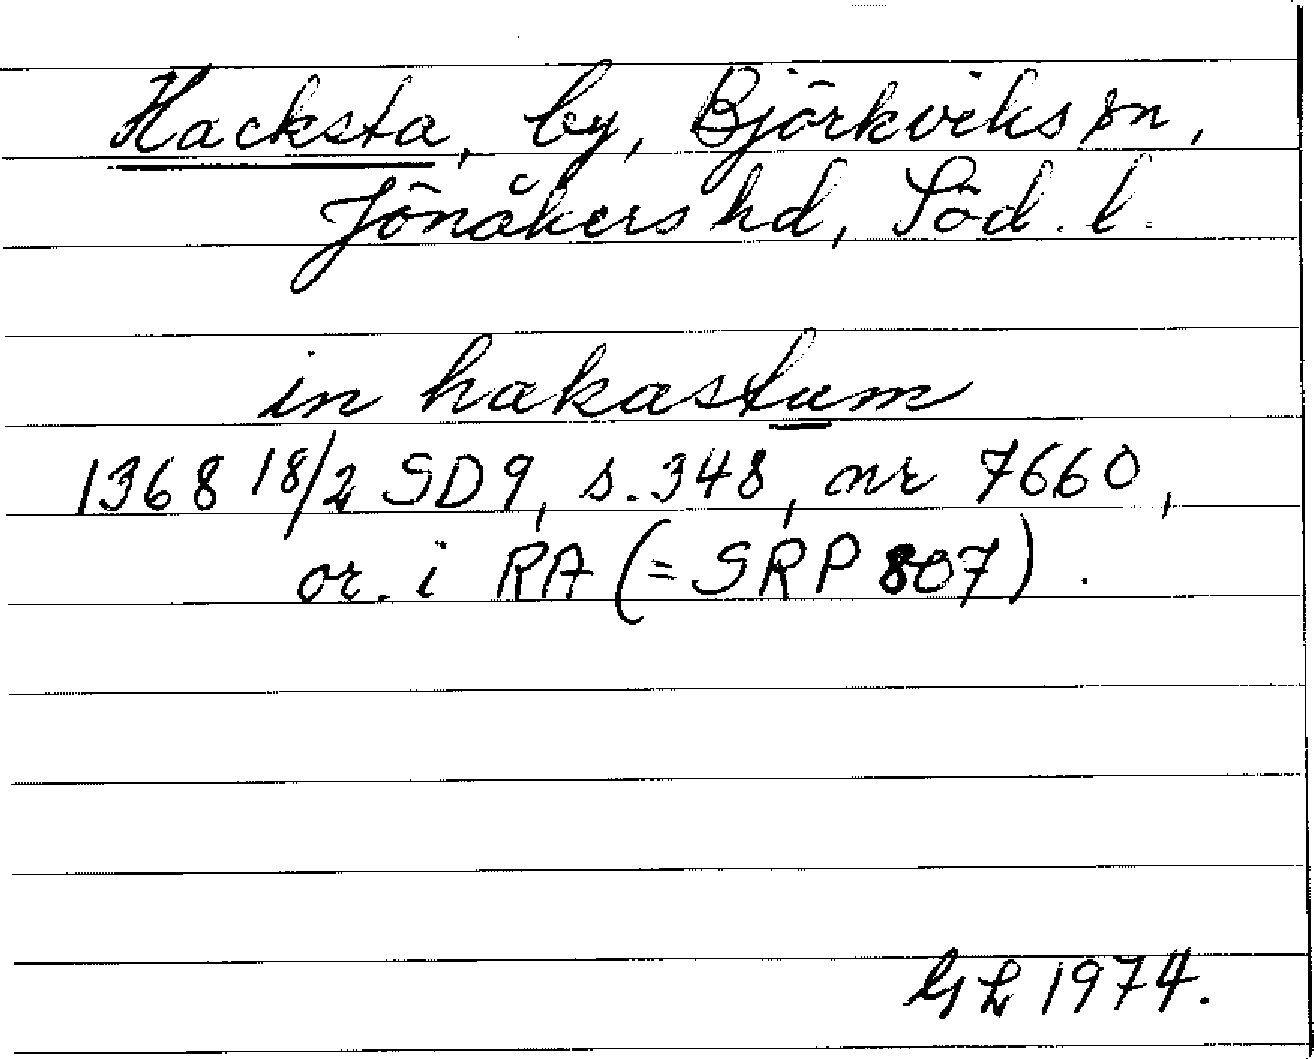 Hacksta, by, Björkviks sn,
Jönåkers hd, Söd. l.
in hakastum
1368 18/2 SD 9, s. 348, nr 7660,
or. i RA (= SRP 807).
GL 1974.